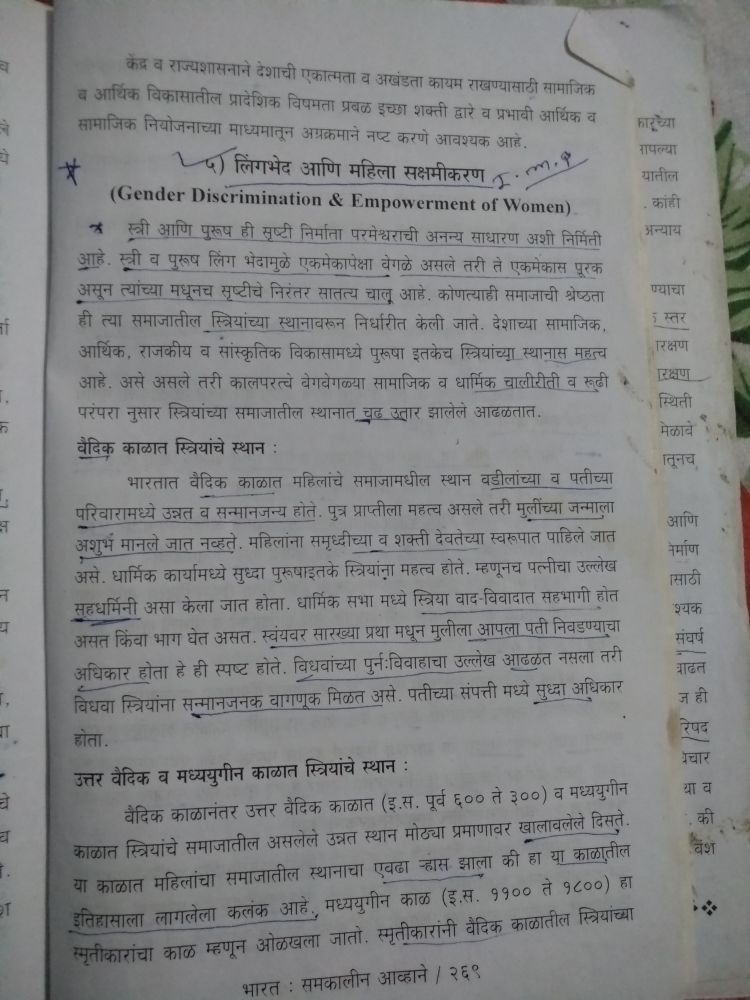 केंद्र व राज्यशासनाने देशाची एकात्मता व अखंडता कायम राखण्यासाठी सामाजिक
व आर्थिक विकासातील प्रादेशिक विषमता प्रबळ इच्छा शक्ती द्वारे व प्रभावी आर्थिक व
सामाजिक नियोजनाच्या माध्यमातून अग्रक्रमाने नष्ट करणे आवश्यक आहे.
५) लिंगभेद आणि महिला सक्षमीकरण I.M.P
(Gender Discrimination & Empowerment of Women)
स्त्री आणि पुरूष ही सृष्टी निर्माता परमेश्वराची अनन्य साधारण अशी निर्मिती
आहे. स्त्री व पुरूष लिंग भेदामुळे एकमेकापेक्षा वेगळे असले तरी ते एकमेकास पूरक
असून त्यांच्या मधूनच सृष्टीचे निरंतर सातत्य चालू आहे. कोणत्याही समाजाची श्रेष्ठता
ही त्या समाजातील स्त्रियांच्या स्थानावरून निर्धारीत केली जाते. देशाच्या सामाजिक,
आर्थिक, राजकीय व सांस्कृतिक विकासामध्ये पुरूषा इतकेच स्त्रियांच्या स्थानास महत्व
आहे. असे असले तरी कालपरत्वे वेगवेगळ्या सामाजिक व धार्मिक चालीरीती व रूढी
परंपरा नुसार स्त्रियांच्या समाजातील स्थानात चढ उतार झालेले आढळतात.
वैदिक काळात स्त्रियांचे स्थान :
भारतात वैदिक काळात महिलांचे समाजामधील स्थान वडीलांच्या व पतीच्या
परिवारामध्ये उन्नत व सन्मानजन्य होते. पुत्र प्राप्तीला महत्व असले तरी मुलींच्या जन्माला
अशुभ मानले जात नव्हते. महिलांना समृध्दीच्या व शक्ती देवतेच्या स्वरूपात पाहिले जात
असे. धार्मिक कार्यामध्ये सुध्दा पुरूषाइतके स्त्रियांना महत्व होते. म्हणूनच पत्नीचा उल्लेख
सहधर्मिनी असा केला जात होता. धार्मिक सभा मध्ये स्त्रिया वाद-विवादात सहभागी होत
असत किंवा भाग घेत असत. स्वंयवर सारख्या प्रथा मधून मुलीला आपला पती निवडण्याचा
अधिकार होता हे ही स्पष्ट होते. विधवांच्या पुर्नःविवाहाचा उल्लेख आढळत नसला तरी
विधवा स्त्रियांना सन्मानजनक वागणूक मिळत असे. पतीच्या संपत्ती मध्ये सुध्दा अधिकार
होता.
उत्तर वैदिक व मध्ययुगीन काळात स्त्रियांचे स्थान :
वैदिक काळानंतर उत्तर वैदिक काळात (इ.स. पूर्व ६०० ते ३००) व मध्ययुगीन
काळात स्त्रियांचे समाजातील असलेले उन्नत स्थान मोठ्या प्रमाणावर खालावलेले दिसते.
या काळात महिलांचा समाजातील स्थानाचा एवढा ऱ्हास झाला की हा या काळातील
इतिहासाला लागलेला कलंक आहे. मध्ययुगीन काळ (इ.स. ११०० ते १८००) हा
स्मृतीकारांचा काळ म्हणून ओळखला जातो. स्मृतीकारांनी वैदिक काळातील स्त्रियांच्या
भारत : समकालीन आव्हाने / २६९